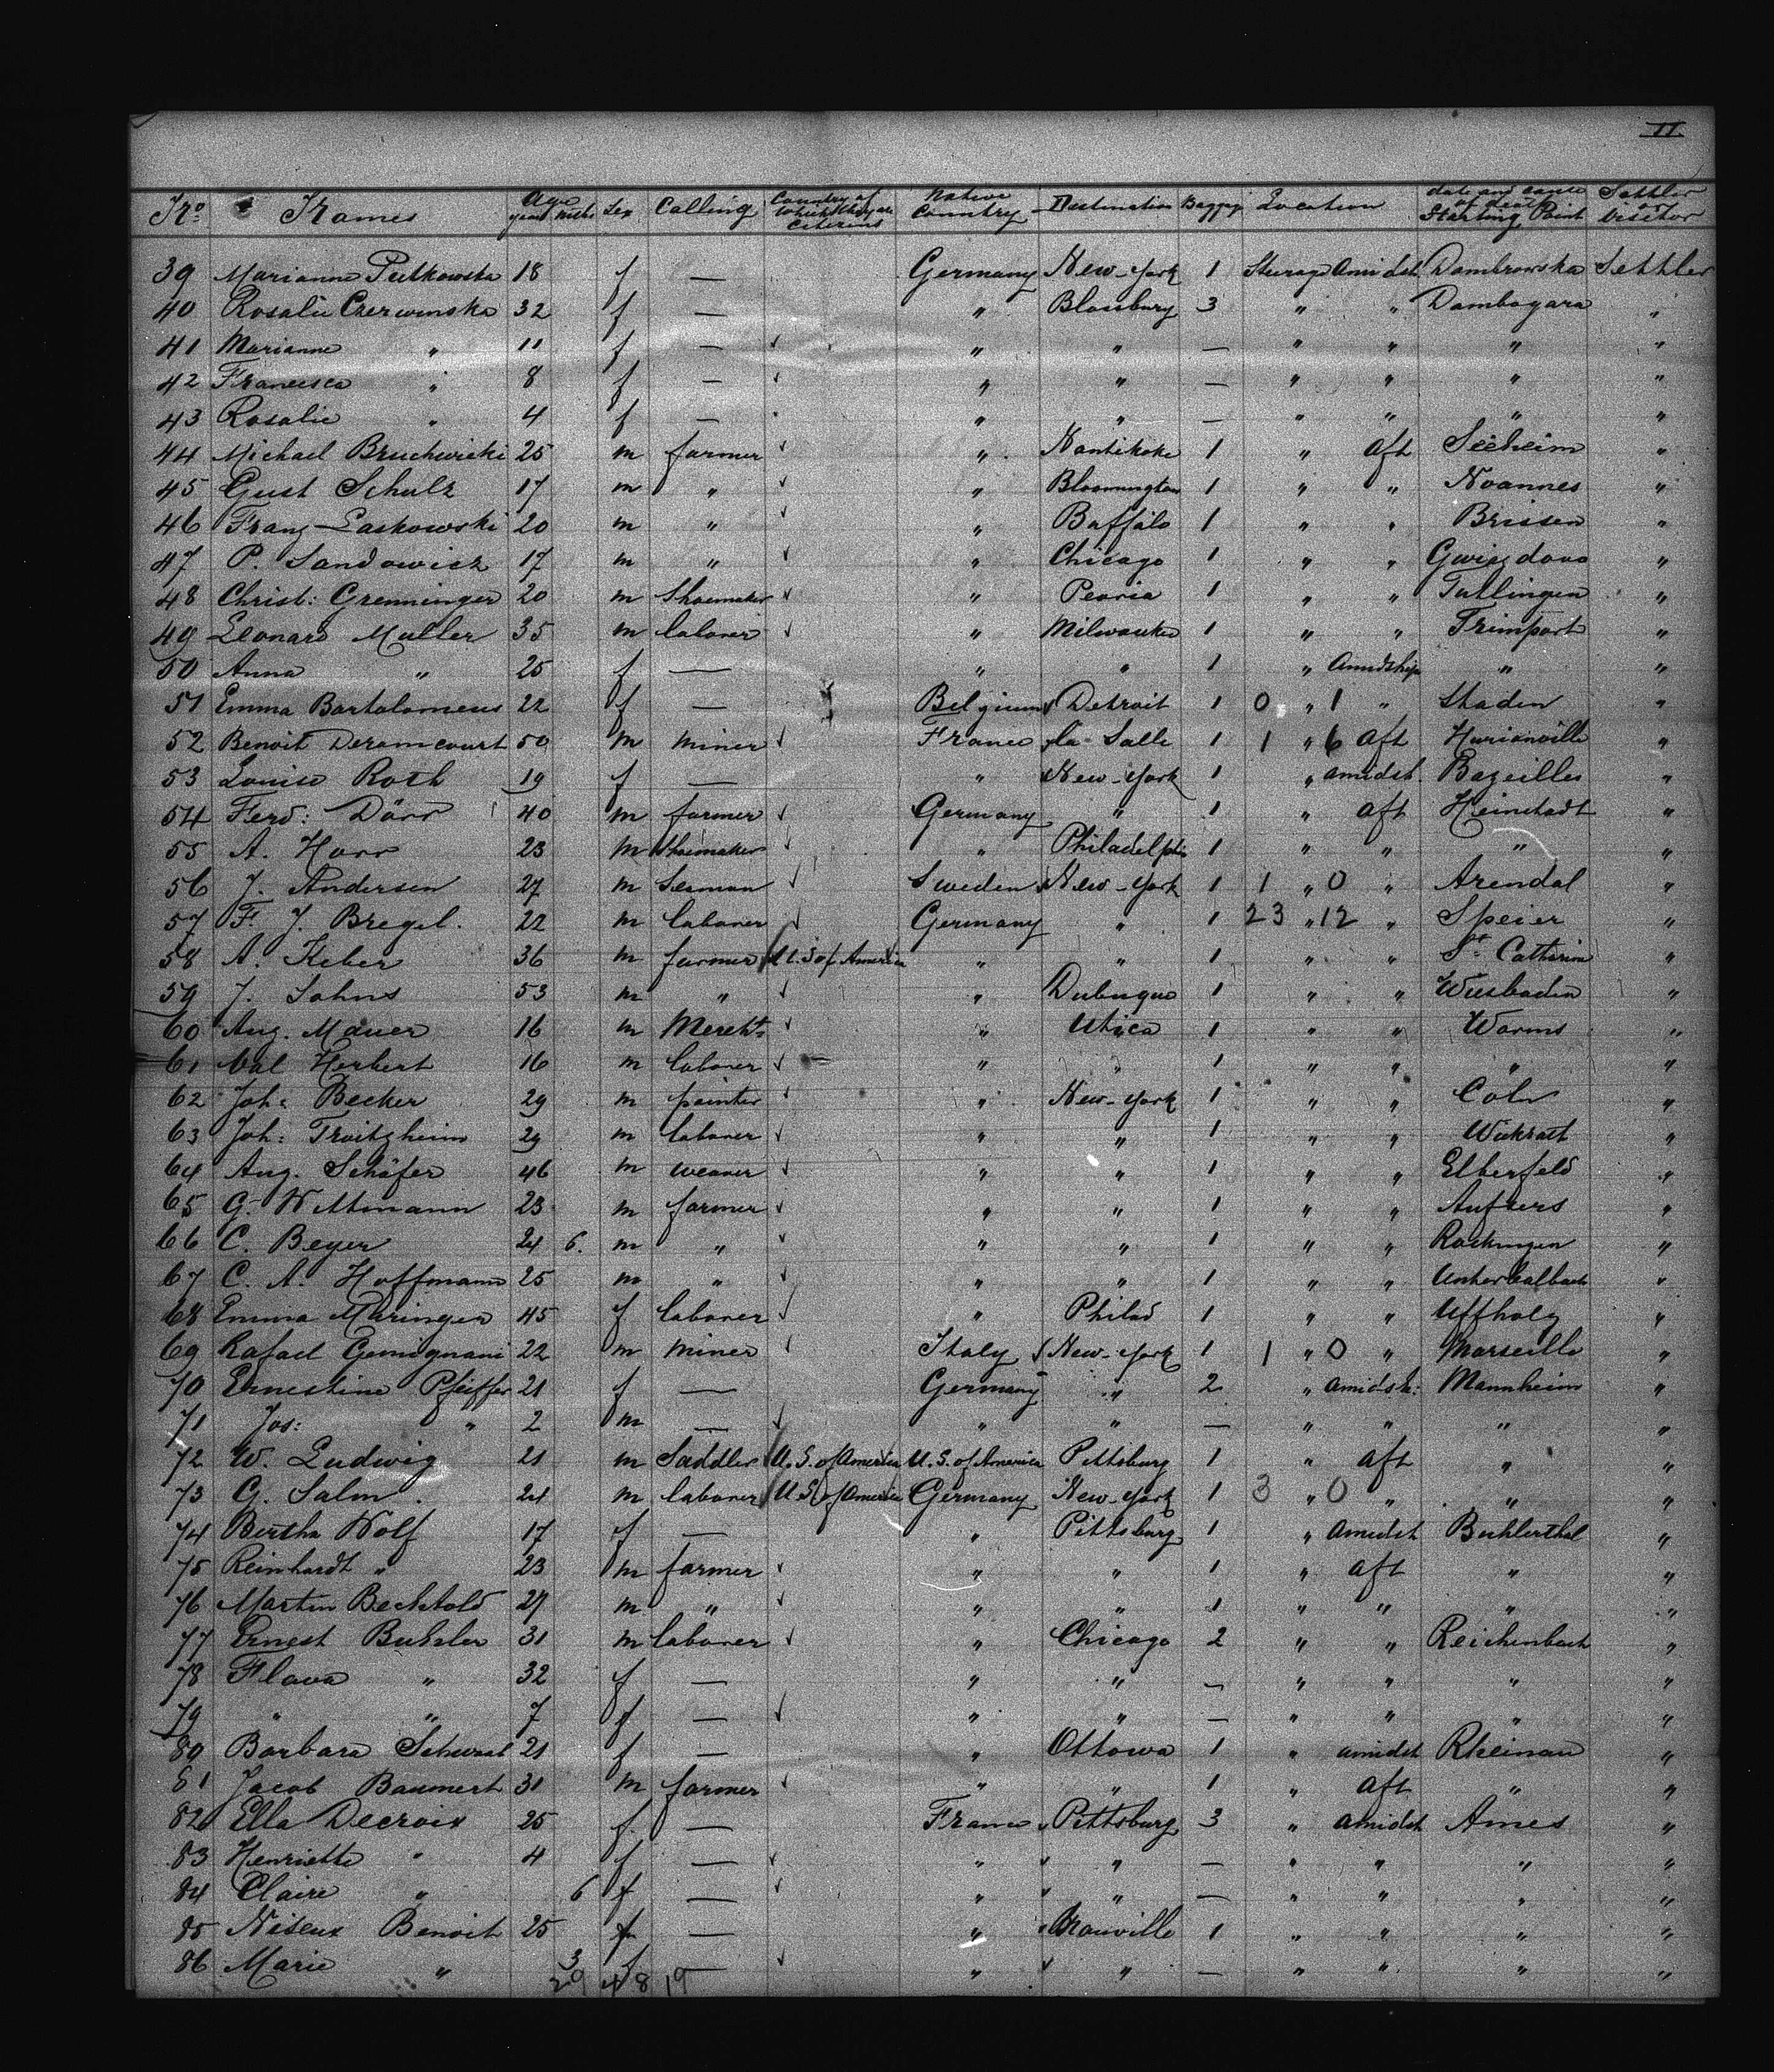 II.
No. Names Age years Mths Sex Calling Country of which they are Citizens Native Country Destination Baggage Location date and cause of death Starting Point Settler or Visitor
39 Marianne Putkowska 18 f — Germany New-York 1 Steerage Amidsh Dombrowska Settler
40 Rosalie Czerwinska 32 f — " Blossburg 3 " " Dombogara "
41 Marianne " 11 f — " " — " " " "
42 Francisca " 8 f — " " — " " " "
43 Rosalie " 4 f — " " — " " " "
44 Michael 25 m farmer " Nantikoke 1 " aft Seeheim "
45 Gust Schulz 17 m " " Bloomington 1 " " Noannes "
46 Franz Laskowski 20 m " " Buffalo 1 " " Brissen "
47 P. Sandowisz 17 m " " Chicago 1 " " "
48 Christ: Grenninger 20 m Shoemaker " Peoria 1 " " Tullingen "
49 Leonard Muller 35 m laborer " Milwaukee 1 " " Trimport "
50 Anna " 25 f — " " 1 " Amidship " "
51 Emma Bartolomeus 22 f — Belgium Detroit 1 0 " 1 " Staden "
52 Benoit Deramcourt 50 m miner France La Salle 1 1 " 6 aft "
53 Louise Roth 19 f — " New-York 1 " amidsh. Bazeilles "
54 Ferd: Dörr 40 m farmer Germany " 1 " aft Heinstadt "
55 A. Horr 23 m Shoemaker " Philadelphia 1 " " " "
56 J. Andersen 27 m Seaman Sweden New-York 1 1 " 0 " Arendal "
57 F. J. Bregel. 22 m laborer Germany " 1 23 " 12 " Speier "
58 A. Keber 36 m farmer U.S of America " " 1 " " St. Catharina "
59 J. Sahns 53 m " " Dubuque 1 " " Wiesbaden "
60 Aug. Mauer 16 m Mercht. " Utica 1 " " Worms "
61 Val Herbert 16 m laborer " " 1 " " " "
62 Joh: Becker 29 m painter " New-York 1 " " Cöln "
63 Joh: Troitzheim 29 m laborer " " 1 " " Wickrath "
64 Aug. Schäfer 46 m weaver " " 1 " " Elberfeld "
65 G. Wittmann 23 m farmer " " 1 " " Aufsers "
66 C. Beyer 24 6. m " " " 1 " " "
67 C. A. Hoffmann 25 m " " " 1 " " Unterbalbach "
68 Emma Müringer 45 f laborer " Philad 1 " " Uffholz "
69 Rafael Gemignani 22 m miner Italy New-York 1 1 " 0 " Marseille "
70 Ernestine Pfeiffer 21 f — Germany " 2 " amidsh: Mannheim "
71 Jos: " 2 m — " " — " " " "
72 W. Ludwig 21 m Saddler U.S. of America U.S. of America Pittsburg 1 " aft " "
73 G. Salm. 24 m laborer U.S. of America Germany New-York 1 3 " 0 " " "
74 Bertha Wolf 17 f — " Pittsburg 1 " amidsh Buhlerthal "
75 Reinhardt " 23 m farmer " " 1 " aft " "
76 Martin Bechtold 27 m " " " 1 " " " "
77 Ernest Buhzler 31 m laborer " Chicago 2 " " Reichenbach "
78 Flava " 32 f — " " — " " " "
79 " " 7 f — " " — " " " "
80 Barbara Schwaal 21 f — " Ottowa 1 " amidsh Rheinau "
81 Jacob Baumert 31 m farmer " " 1 " aft " "
82 Ella Decroix 25 f. — France Pittsburg 3 " amidsh Aines "
83 Henriette " 4 f — " " — " " " "
84 Claire " 6 f — " " — " " " "
85 Niseux Benoit 25 f — " 1 " " " "
86 Marie " 3 f — " " — " " " "
29 48 19